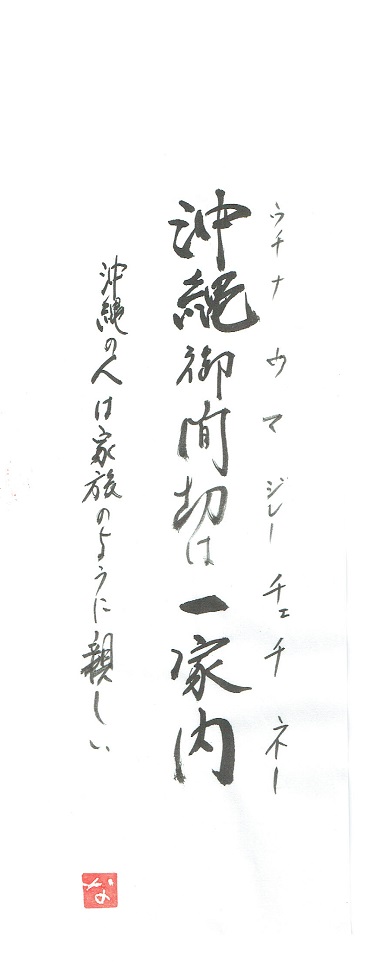 ウチナ ウマジレー チェ チネー
沖縄御間切は一家内
沖縄の人は家族のように親しい
な